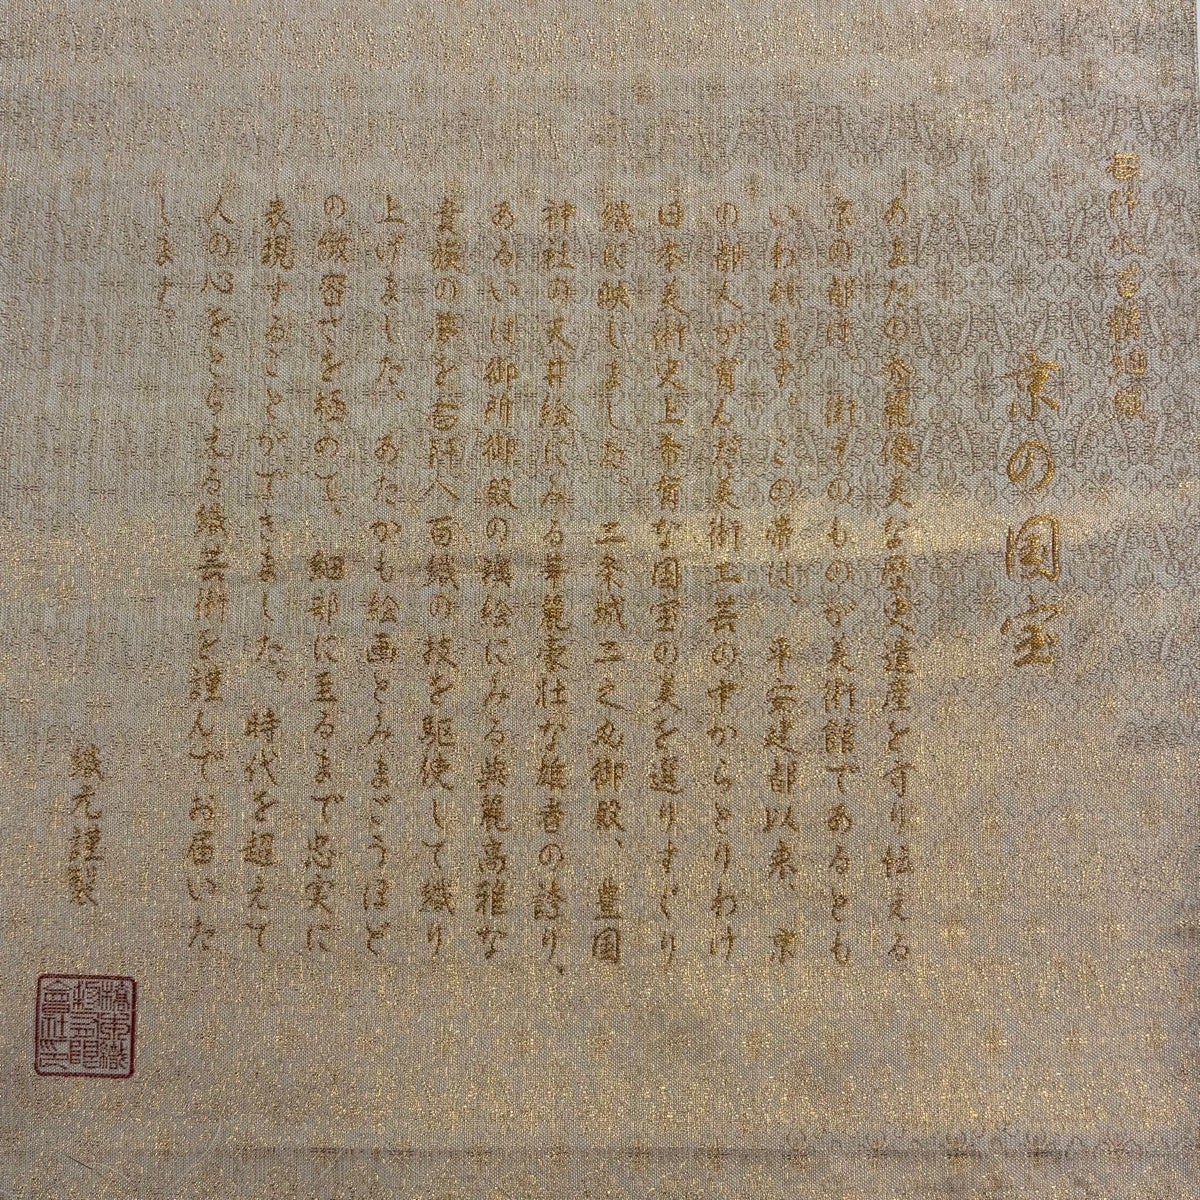 京の国宝
あまたの秀麗優美な歴史遺産を守り伝える
京の都は、街そのものが美術館であるとも
いわれます。この帯は、平安建都以来、京
の都人が育んだ美術工芸の中からとりわけ
日本美術史上希有な国宝の美を選りすぐり
織り映しました。二条城二之丸御殿、豊国
神社の天井絵にみる華麗豪壮な雄者の誇り、
あるいは御所御殿の襖絵にみる典麗高雅な
貴族の夢を
人百織の技を駆使して織り
上げました。あたかも絵画とみまごうほど
の緻密さを極めて、細部に至るまで忠実に
表現することができました。時代を超えて
人の心をとらえる織芸術を謹んでお届いた
します。
織元謹製